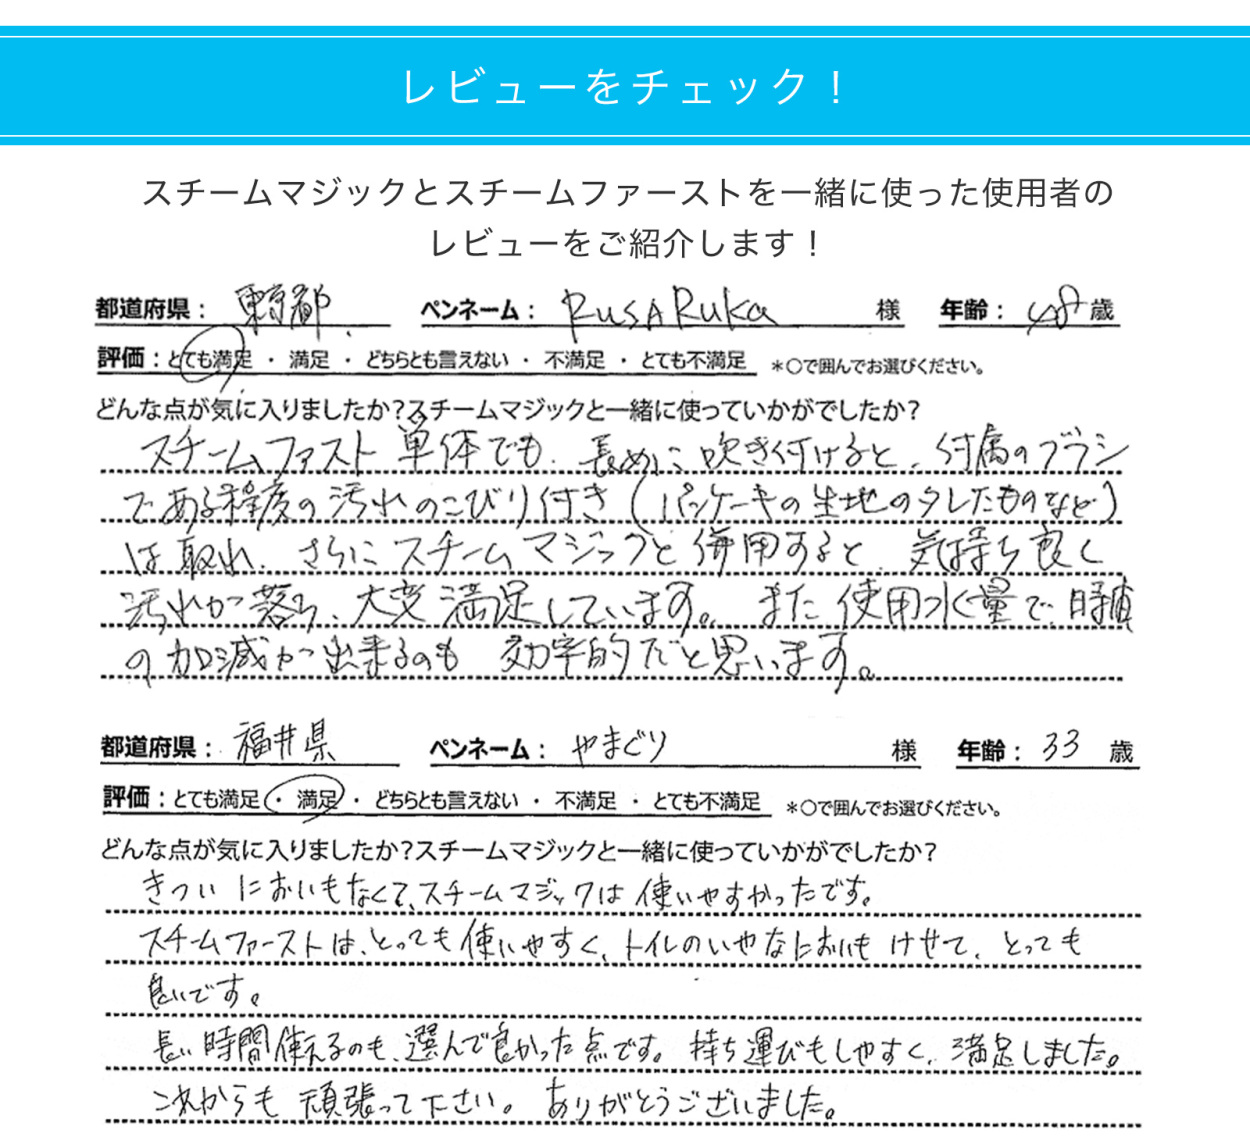 レビューをチェック！
スチームマジックとスチームファーストを一緒に使った使用者の
レビューをご紹介します！
都道府県： 東京都 ペンネーム： RUSARUKa 様 年齢： 48歳
評価：とても満足 ・ 満足 ・ どちらとも言えない ・ 不満足 ・ とても不満足 ＊○で囲んでお選びください。
どんな点が気に入りましたか？スチームマジックと一緒に使っていかがでしたか？
スチームファスト 単体でも、長めに吹き付けると、付属のブラシ
である程度の汚れのこびり付き（パンケーキの生地のタレたものなど）
は取れ、さらにスチームマジックと併用すると、気持ち良く
汚れが落ち、大変満足しています。また使用水量で、時間
の加減が出来るのも 効率的だと思います。
都道府県： 福井県 ペンネーム： やまぐり 様 年齢： 33 歳
評価：とても満足 ・ 満足 ・ どちらとも言えない ・ 不満足 ・ とても不満足 ＊○で囲んでお選びください。
どんな点が気に入りましたか？スチームマジックと一緒に使っていかがでしたか？
きついにおいもなくて、スチームマジックは使いやすかったです。
スチームファーストは、とっても使いやすく、トイレのいやなにおいもけせて、とっても
良いです。
長い時間使えるのも、選んで良かった点です。持ち運びもしやすく、満足しました。
これからも頑張って下さい。ありがとうございました。